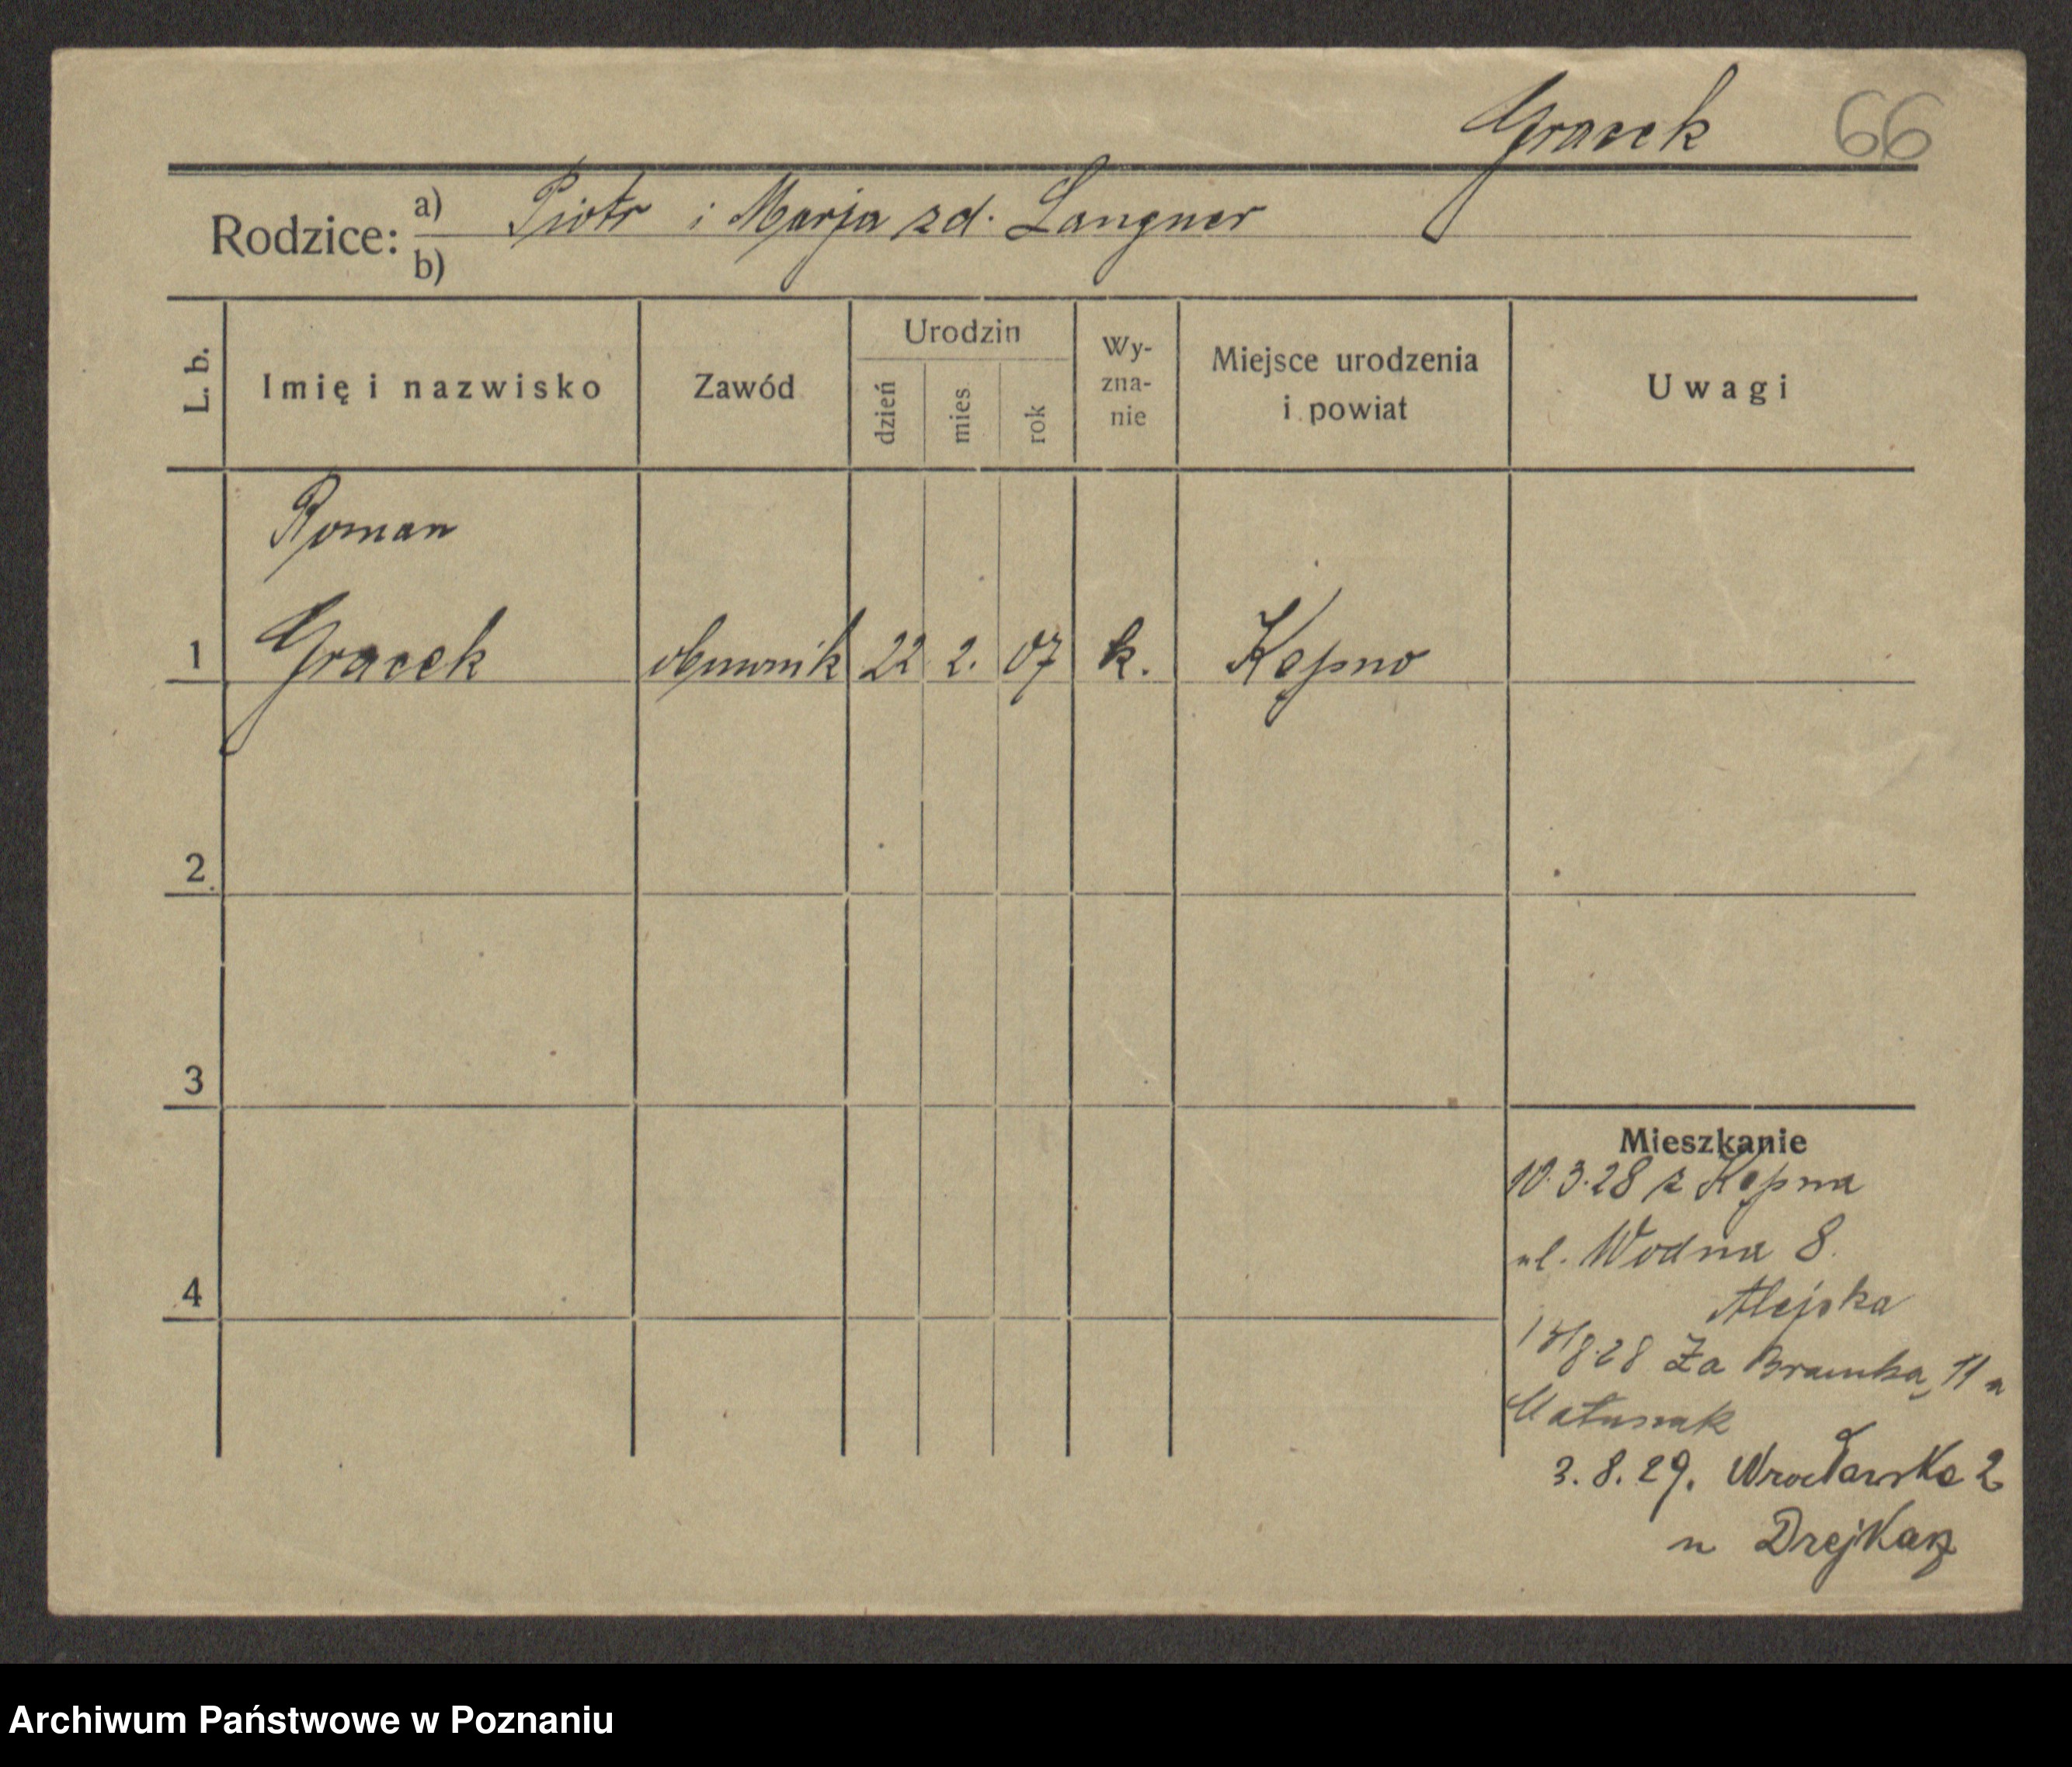 Gracek 66
Rodzice: a) Piotr i Marja zd. Langner
b)
L. b. Imię i nazwisko Zawód Urodzin dzień mies. rok Wy-
zna-
nie Miejsce urodzenia
i powiat Uwagi
Roman
1 Gracek obuwnik 22 2. 07 k. Kępno
2
3
4
Mieszkanie
10.3.28 z Kępna
ul. Wodna 8.
Alejska
8.28 Za Bramką 11a
Matuszak
3.8.29. Wrocławska 2
u
Archiwum Państwowe w Poznaniu